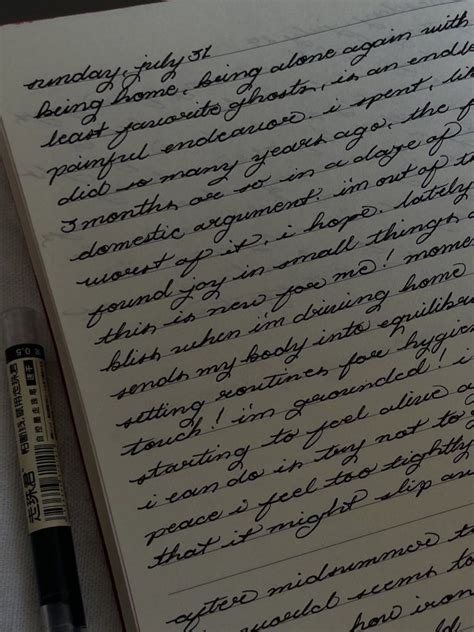 sunday, july 31
being home, being alone again with
least favorite ghosts, is an endle
painful endeavor. i spent, li
did so many years ago, the
3 months or so in a daze of
domestic argument. i'm out of t
worst of it, i hope. lately
found joy in small things
this is new for me! mome
bliss when i'm driving home
sends my body into equilibri
setting routines for hygi
touch! i'm grounded! i
starting to feel alive a
i can do is try not to
peace i feel too tightly
that it might slip aw
after midsummer t
world seems to
how iron
0.5